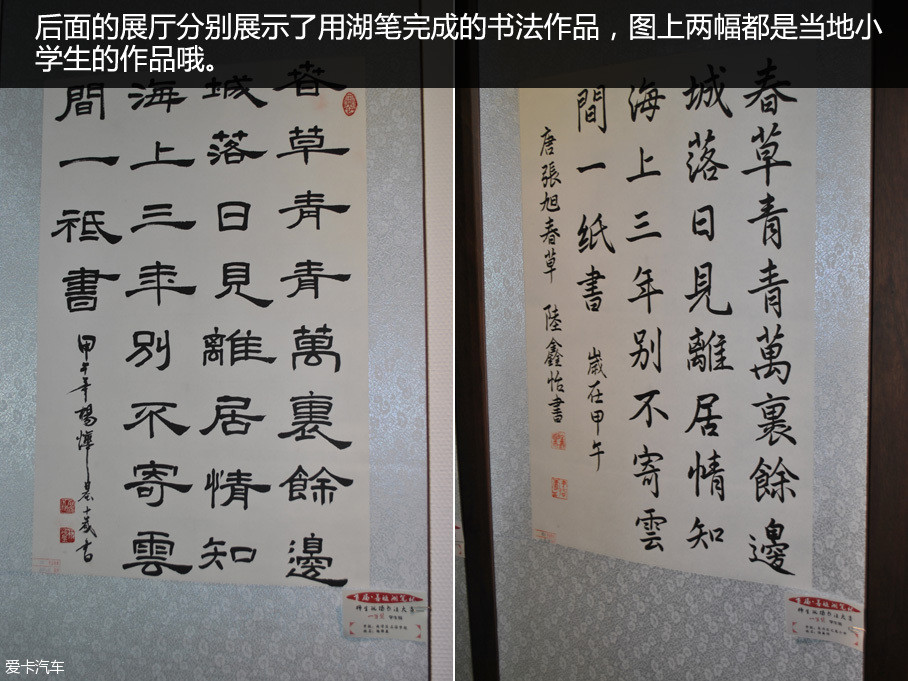 后面的展厅分别展示了用湖笔完成的书法作品，图上两幅都是当地小
学生的作品哦。
春草青青萬裏餘邊
城落日見離居情知
海上三年別不寄雲
間一祗書
甲午年楊
十歲書
春草青青萬裏餘邊
城落日見離居情知
海上三年别不寄雲
間一紙書
歲在甲午
唐張旭春草 陸鑫怡書
爱卡汽车